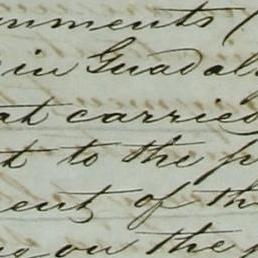 nments (
in Guadal
at carried
t to the p
ment of th
on the